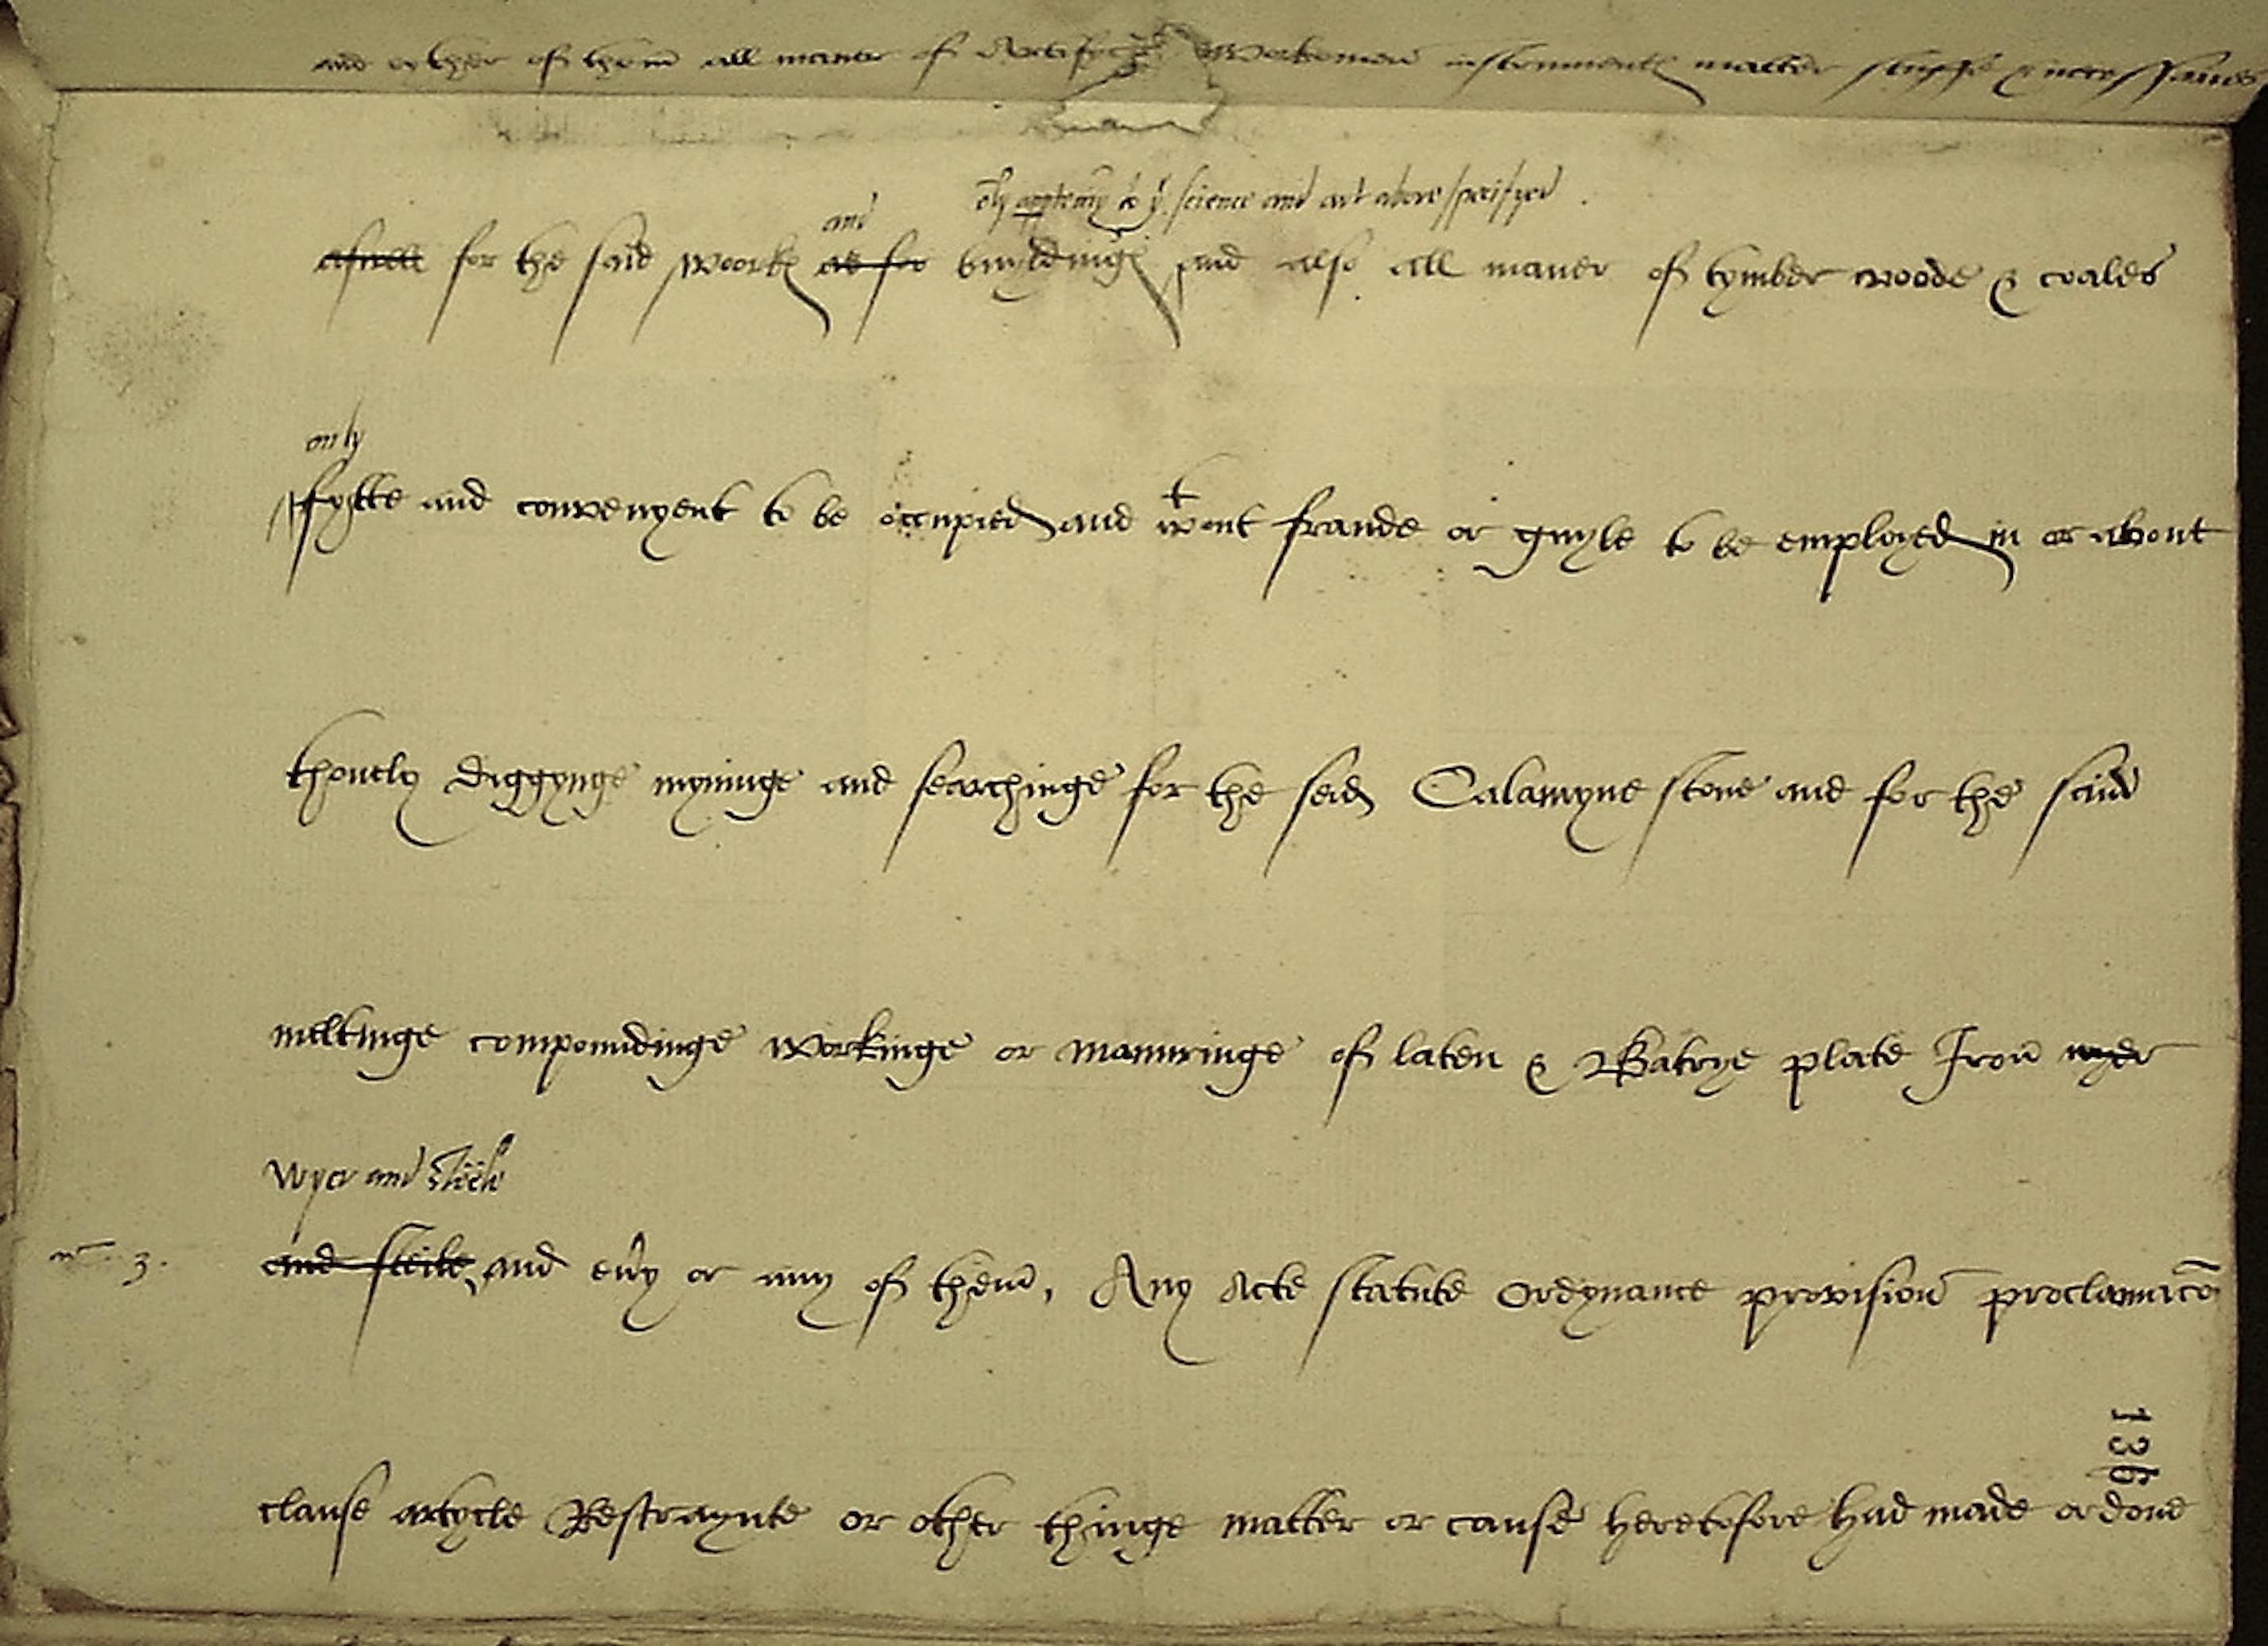 and other of them all maner of Artifyc Workemen instrumentes matter stuffe & necessaries
only apptening to yͤ science and art above specifyed .
and
aswell for the said woorkes as for buyldinges and also all maner of tymber woode & coales
only
fytte and convenyent to be occupied and wᵗout fraude or guyle to be employed in or about
thonely diggynge myninge and searchinge for the seid Calamyne stone and for the said
meltinge compoundinge workinge or manuringe of laten & Batrye plate Iron wyer
Wyer and Steele
nᵒ. 3. and steile, and evy or any of them, Any Acte statute Ordynance provision proclamacō
136
clause artycle Restraynte or other thinge matter or cause heretofore had made or done